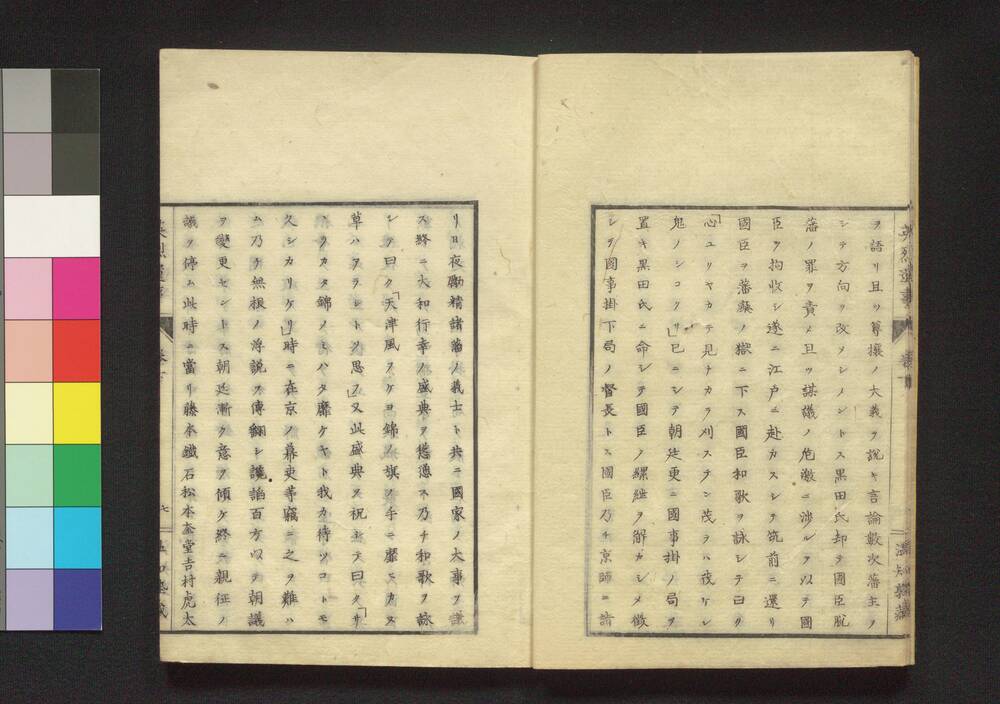 ヲ語リ且ツ尊攘ノ大義ヲ說キ言論數次藩主ノ
シテ方向ヲ改メシメントス黒田氏却テ國臣脱
藩ノ罪ヲ責メ且ツ謀議ノ危激ニ涉ルヲ以テ國
臣ヲ拘收シ遂ニ江戸ニ赴カスシテ筑前ニ還リ
國臣ヲ藩獄ノ獄ニ下ス國臣和歌ヲ詠シテ曰ク
「心ユリヤカテ見ナカラ刈ステン茂ラハ茂ケシ
鬼ノシコクサ」已ニシテ朝廷更ニ國事掛ノ局ヲ
置キ黒田氏ニ命シテ國臣ノ縲絏ヲ解カシメ徴
シテ國事掛下局ノ督長トス國臣乃チ京師ニ詣
リ日夜勵精諸藩ノ義士ト共ニ國家ノ大事ヲ議
ス終ニ大和行幸ノ盛典ヲ慫慂ス乃チ和歌ヲ詠
シテ曰ク「天津風フケヨ錦ノ旗ノ手ニ靡ニカヌ
草ハアラシトソ思フ」又此盛典ヲ祝シテ曰ク「サ
ヽクカタ錦ノミハタ靡ケヤト我カ待ツコトモ
久シカリケリ」時ニ在京ノ幕吏等竊ニ之ヲ難ハ
ム乃チ無根ノ浮說ヲ傳翻シ讒謟百方以テ朝議
ヲ變更セシトス朝廷漸ク意ヲ傾ケ終ニ親征ノ
議ヲ停ム此時ニ當リ藤本鐵石松本奎堂吉村虎太